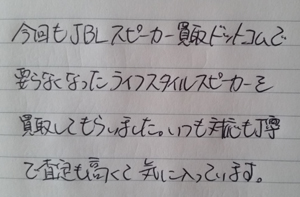 今回もJBLスピーカー買取ドットコムで
要らなくなったライフスタイルスピーカーを
買取してもらいました。いつも対応も丁寧
で査定も高くて気に入っています。